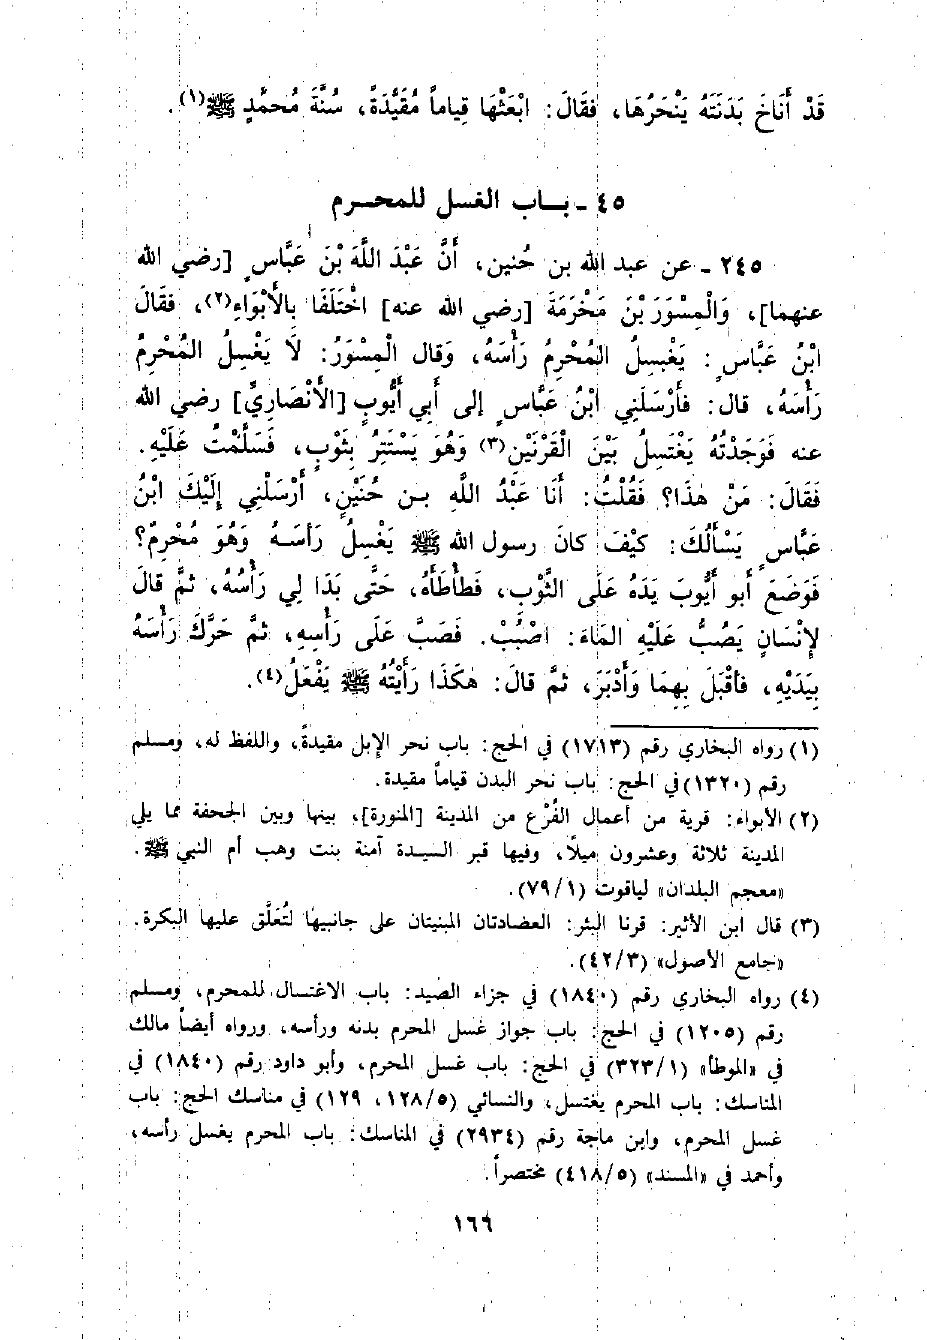 قَدْ أَنَاخَ بَدَنَتَهُ يَنْحَرُهَا، فقَالَ: ابْعَثْهَا قِياماً مُقَيَّدَةً، سُنَّةَ مُحمَّدٍ ﷺ(١).
٤٥ ـ بــاب الغسل للمحــرم
٢٤٥ ـ عن عبد الله بن حُنين، أَنَّ عَبْدَ اللَّهِ بْنَ عَبَّاسٍ [رضي الله
عنهما]، وَالْمِسْوَرَ بْنَ مَخْرَمَةَ [رضي الله عنه] اخْتَلَفَا بِالأَبْوَاءِ(٢)، فقَالَ
ابْنُ عَبَّاسٍ: يَغْسِلُ المُحْرِمُ رَأْسَهُ، وَقال الْمِسْوَرُ: لَا يَغْسِلُ المُحْرِمُ
رَأْسَهُ، قال: فأَرْسَلَنِي ابْنُ عَبَّاسٍ إلى أَبِي أَيُّوبٍ [الأَنْصَارِيِّ] رضي الله
عنه فَوَجَدْتُهُ يَغْتَسِلُ بَيْنَ الْقَرْنَيْنِ(٣) وَهُوَ يَسْتَتِرُ بِثَوْبٍ، فَسَلَّمْتُ عَلَيْهِ.
فَقَالَ: مَنْ هٰذَا؟ فَقُلْتُ: أَنَا عَبْدُ اللَّهِ بـن حُنَيْنٍ، أَرْسَلَنِي إِلَيْكَ ابْنُ
عَبَّاسٍ يَسْأَلُكَ: كَيْفَ كانَ رسول الله ﷺ يَغْسِلُ رَأسَـهُ وَهُوَ مُحْرِمٌ؟
فَوَضَعَ أَبو أَيُّوبَ يَدَهُ عَلَى الثَّوْبِ، فَطَأْطَأَهُ، حَتَّى بَدَا لِي رَأْسُهُ، ثمَّ قالَ
لإنْسَانٍ يَصُبُّ عَلَيْهِ المَاءَ: اصْبُبْ. فَصَبَّ عَلَى رَأْسِهِ، ثمَّ حَرَّكَ رَأْسَهُ
بِيَدَيْهِ، فأقْبَلَ بِهِمَا وَأَدْبَرَ، ثمَّ قالَ: هٰكَذَا رَأَيْتُهُ ﷺ يَفْعَلُ(٤).
(١) رواه البخاري رقم (١٧١٣) في الحج: باب نحر الإبل مقيدةً، واللفظ له، ومسلم
رقم (١٣٢٠) في الحج: باب نحر البدن قياماً مقيدة.
(٢) الأبواء: قرية من أعمال الفُرْع من المدينة [المنورة]، بينها وبين الجحفة مما يلي
المدينة ثلاثة وعشرون ميلًا، وفيها قبر السيـدة آمنة بنت وهب أم النبي ﷺ.
«معجم البلدان» لياقوت (٧٩/١).
(٣) قال ابن الأثير: قرنا البئر: العضادتان المبنيتان على جانبيها لتُعَلَّق عليها البكرة.
«جامع الأصول» (٤٢/٣).
(٤) رواه البخاري رقم (١٨٤٠) في جزاء الصيد: باب الاغتسال للمحرم، ومسلم
رقم (١٢٠٥) في الحج: باب جواز غسل المحرم بدنه ورأسه، ورواه أيضاً مالك
في «الموطأ» (٣٢٣/١) في الحج: باب غسل المحرم، وأبو داود رقم (١٨٤٠) في
المناسك: باب المحرم يغتسل، والنسائي (١٢٨/٥، ١٢٩) في مناسك الحج: باب
غسل المحرم، وابن ماجة رقم (٢٩٣٤) في المناسك: باب المحرم يغسل رأسه،
وأحمد في «المسند» (٤١٨/٥) مختصراً.
١٦٦